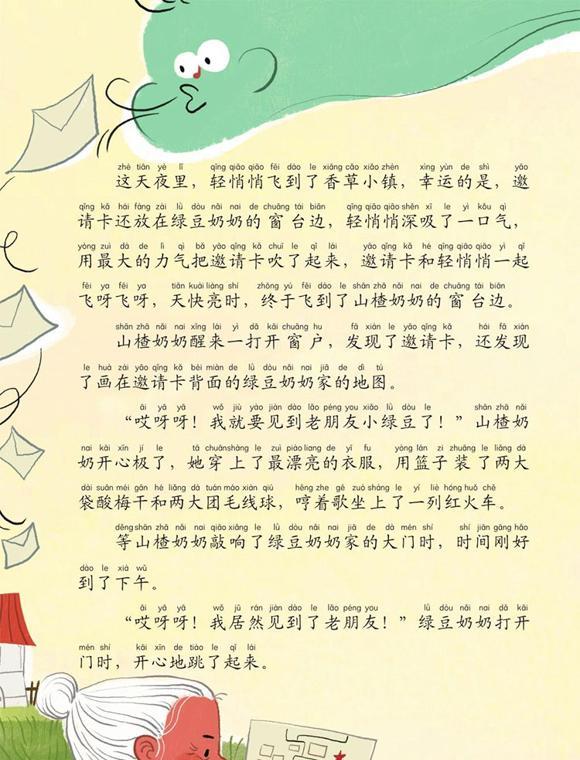 zhè tiān yè lǐ qīng qiāo qiāo fēi dào le xiāng cǎo xiǎo zhèn xìng yùn de shì yāo
这天夜里，轻悄悄飞到了香草小镇，幸运的是，邀
qǐng kǎ hái fàng zài lǜ dòu nǎi nai de chuāng tái biān qīng qiāo qiāo shēn xī le yì kǒu qì
请卡还放在绿豆奶奶的窗台边，轻悄悄深吸了一口气，
yòng zuì dà de lì qì bǎ yāo qǐng kǎ chuī le qǐ lái yāo qǐng kǎ hé qīng qiāo qiāo yì qǐ
用最大的力气把邀请卡吹了起来，邀请卡和轻悄悄一起
fēi ya fēi ya tiān kuài liàng shí zhōng yú fēi dào le shān zhā nǎi nai de chuāng tái biān
飞呀飞呀，天快亮时，终于飞到了山楂奶奶的窗台边。
shān zhā nǎi nai xǐng lái yì dǎ kāi chuāng hu fā xiàn le yāo qǐng kǎ hái fā xiàn
山楂奶奶醒来一打开窗户，发现了邀请卡，还发现
le huà zài yāo qǐng kǎ bèi miàn de lǜ dòu nǎi nai jiā de dì tú
了画在邀请卡背面的绿豆奶奶家的地图。
āi yā yā wǒ jiù yào jiàn dào lǎo péng you xiǎo lǜ dòu le shān zhā nǎi
“哎呀呀！我就要见到老朋友小绿豆了！”山楂奶
nai kāi xīn jí le tā chuān shàng le zuì piào liang de yī fu yòng lán zi zhuāng le liǎng dà
奶开心极了，她穿上了最漂亮的衣服，用篮子装了两大
dài suān méi gān hé liǎng dà tuán máo xiàn qiú hēng zhe gē zuò shàng le yí liè hóng huǒ chē
袋酸梅干和两大团毛线球，哼着歌坐上了一列红火车。
děng shān zhā nǎi nai qiāo xiǎng le lǜ dòu nǎi nai jiā de dà mén shí shí jiān gāng hǎo
等山楂奶奶敲响了绿豆奶奶家的大门时，时间刚好
dào le xià wǔ
到了下午。
āi yā yā wǒ jū rán jiàn dào le lǎo péng you lǜ dòu nǎi nai dǎ kāi
“哎呀呀！我居然见到了老朋友！”绿豆奶奶打开
mén shí kāi xīn de tiào le qǐ lái
门时，开心地跳了起来。